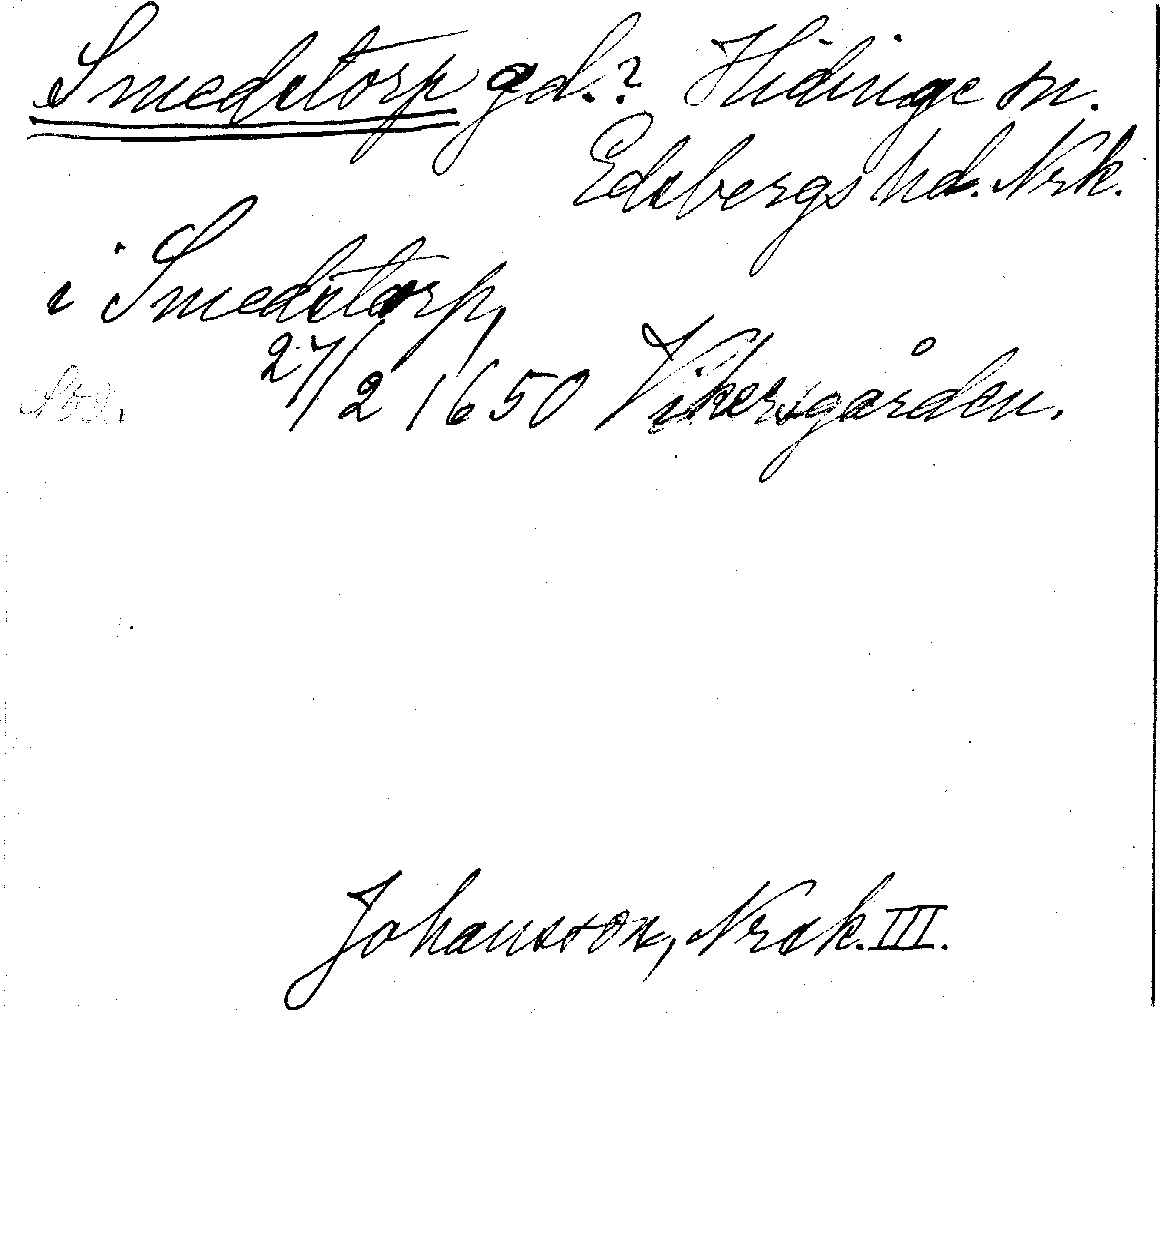 Smedstorp gd.? Hidinge sn.
Edsbergs hd. Nrk.
i Smedstorp,
27/2 1650 Vikersgården.
Johansson, Nrsk. III.